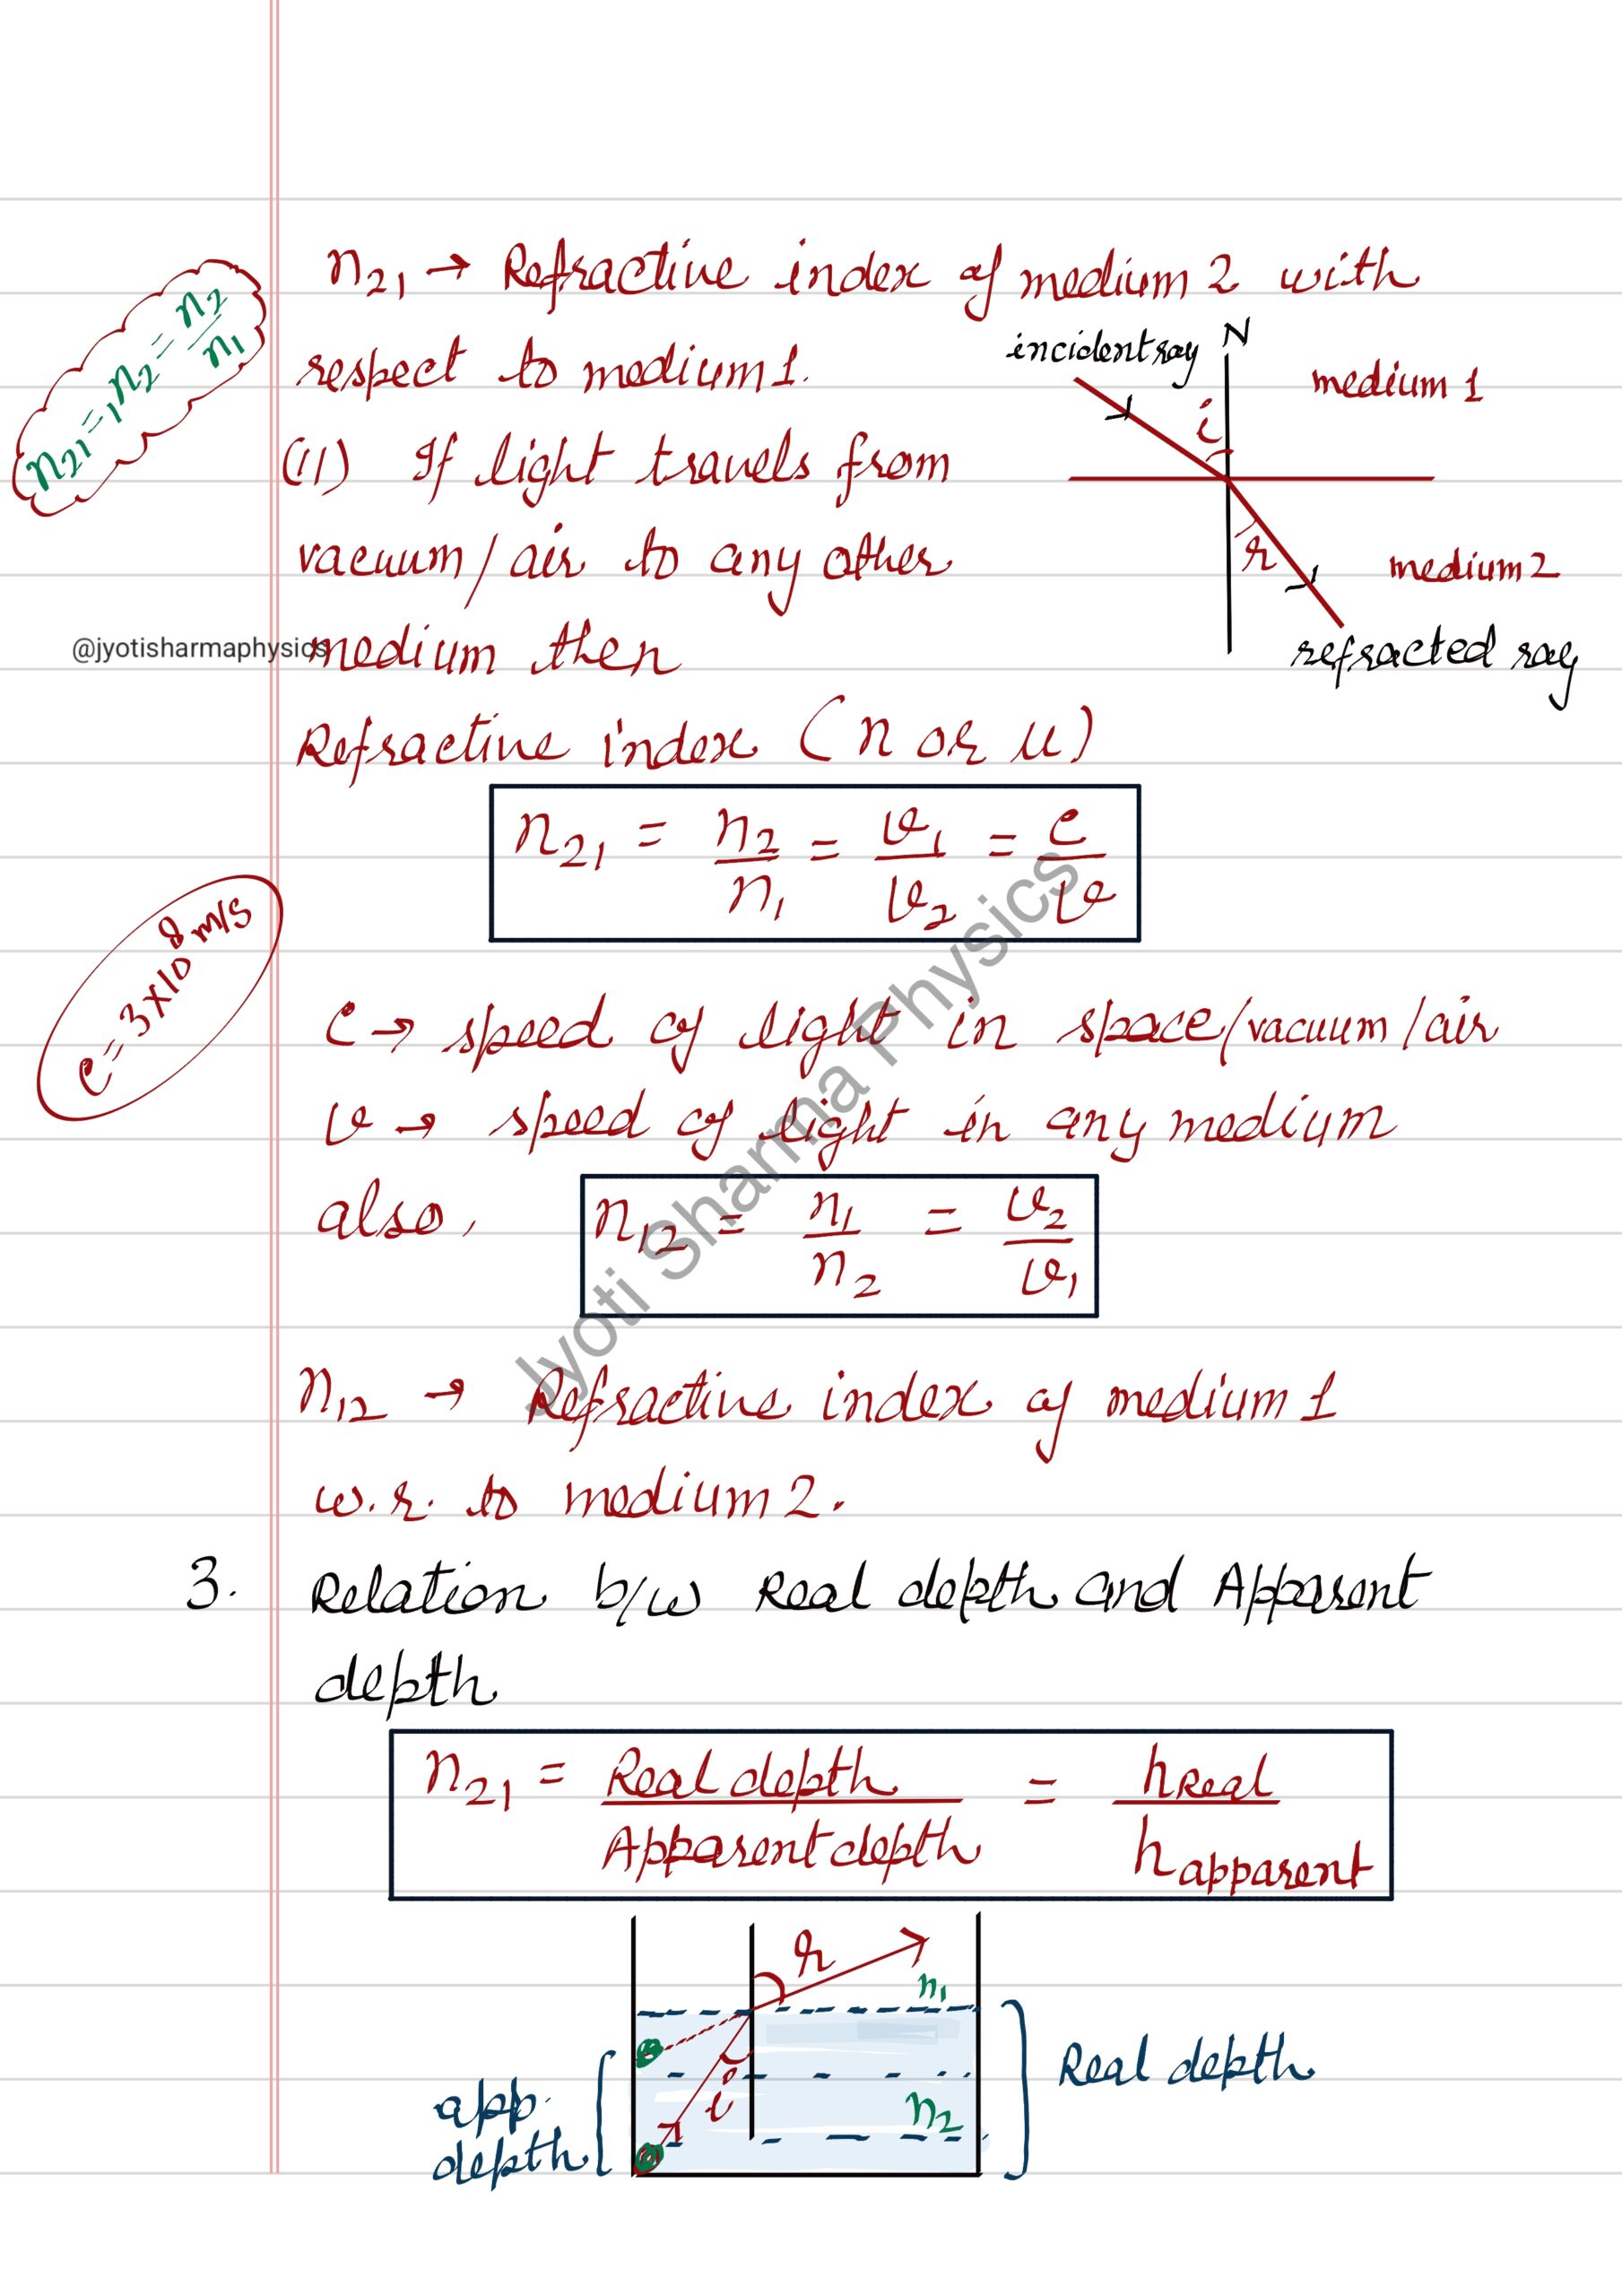 n₂₁ → Refractive index of medium 2 with
respect to medium 1.
n₂₁ = ₁n₂ = n₂/n₁
incident ray
N
medium 1
i
(ii) If light travels from
vacuum/air to any other
r
medium 2
@jyotisharmaphysics
medium then
refracted ray
Refractive index (n or μ)
n₂₁ = n₂/n₁ = v₁/v₂ = c/v
c = 3×10⁸ m/s
c → speed of light in space/vacuum/air
v → speed of light in any medium
also, n₁₂ = n₁/n₂ = v₂/v₁
Jyoti Sharma Physics
n₁₂ → Refractive index of medium 1
w.r. to medium 2.
3. Relation b/w Real depth and Apparent
depth
n₂₁ = Real depth/Apparent depth = hReal/happarent
r
n₁
Real depth
i
n₂
app.
depth